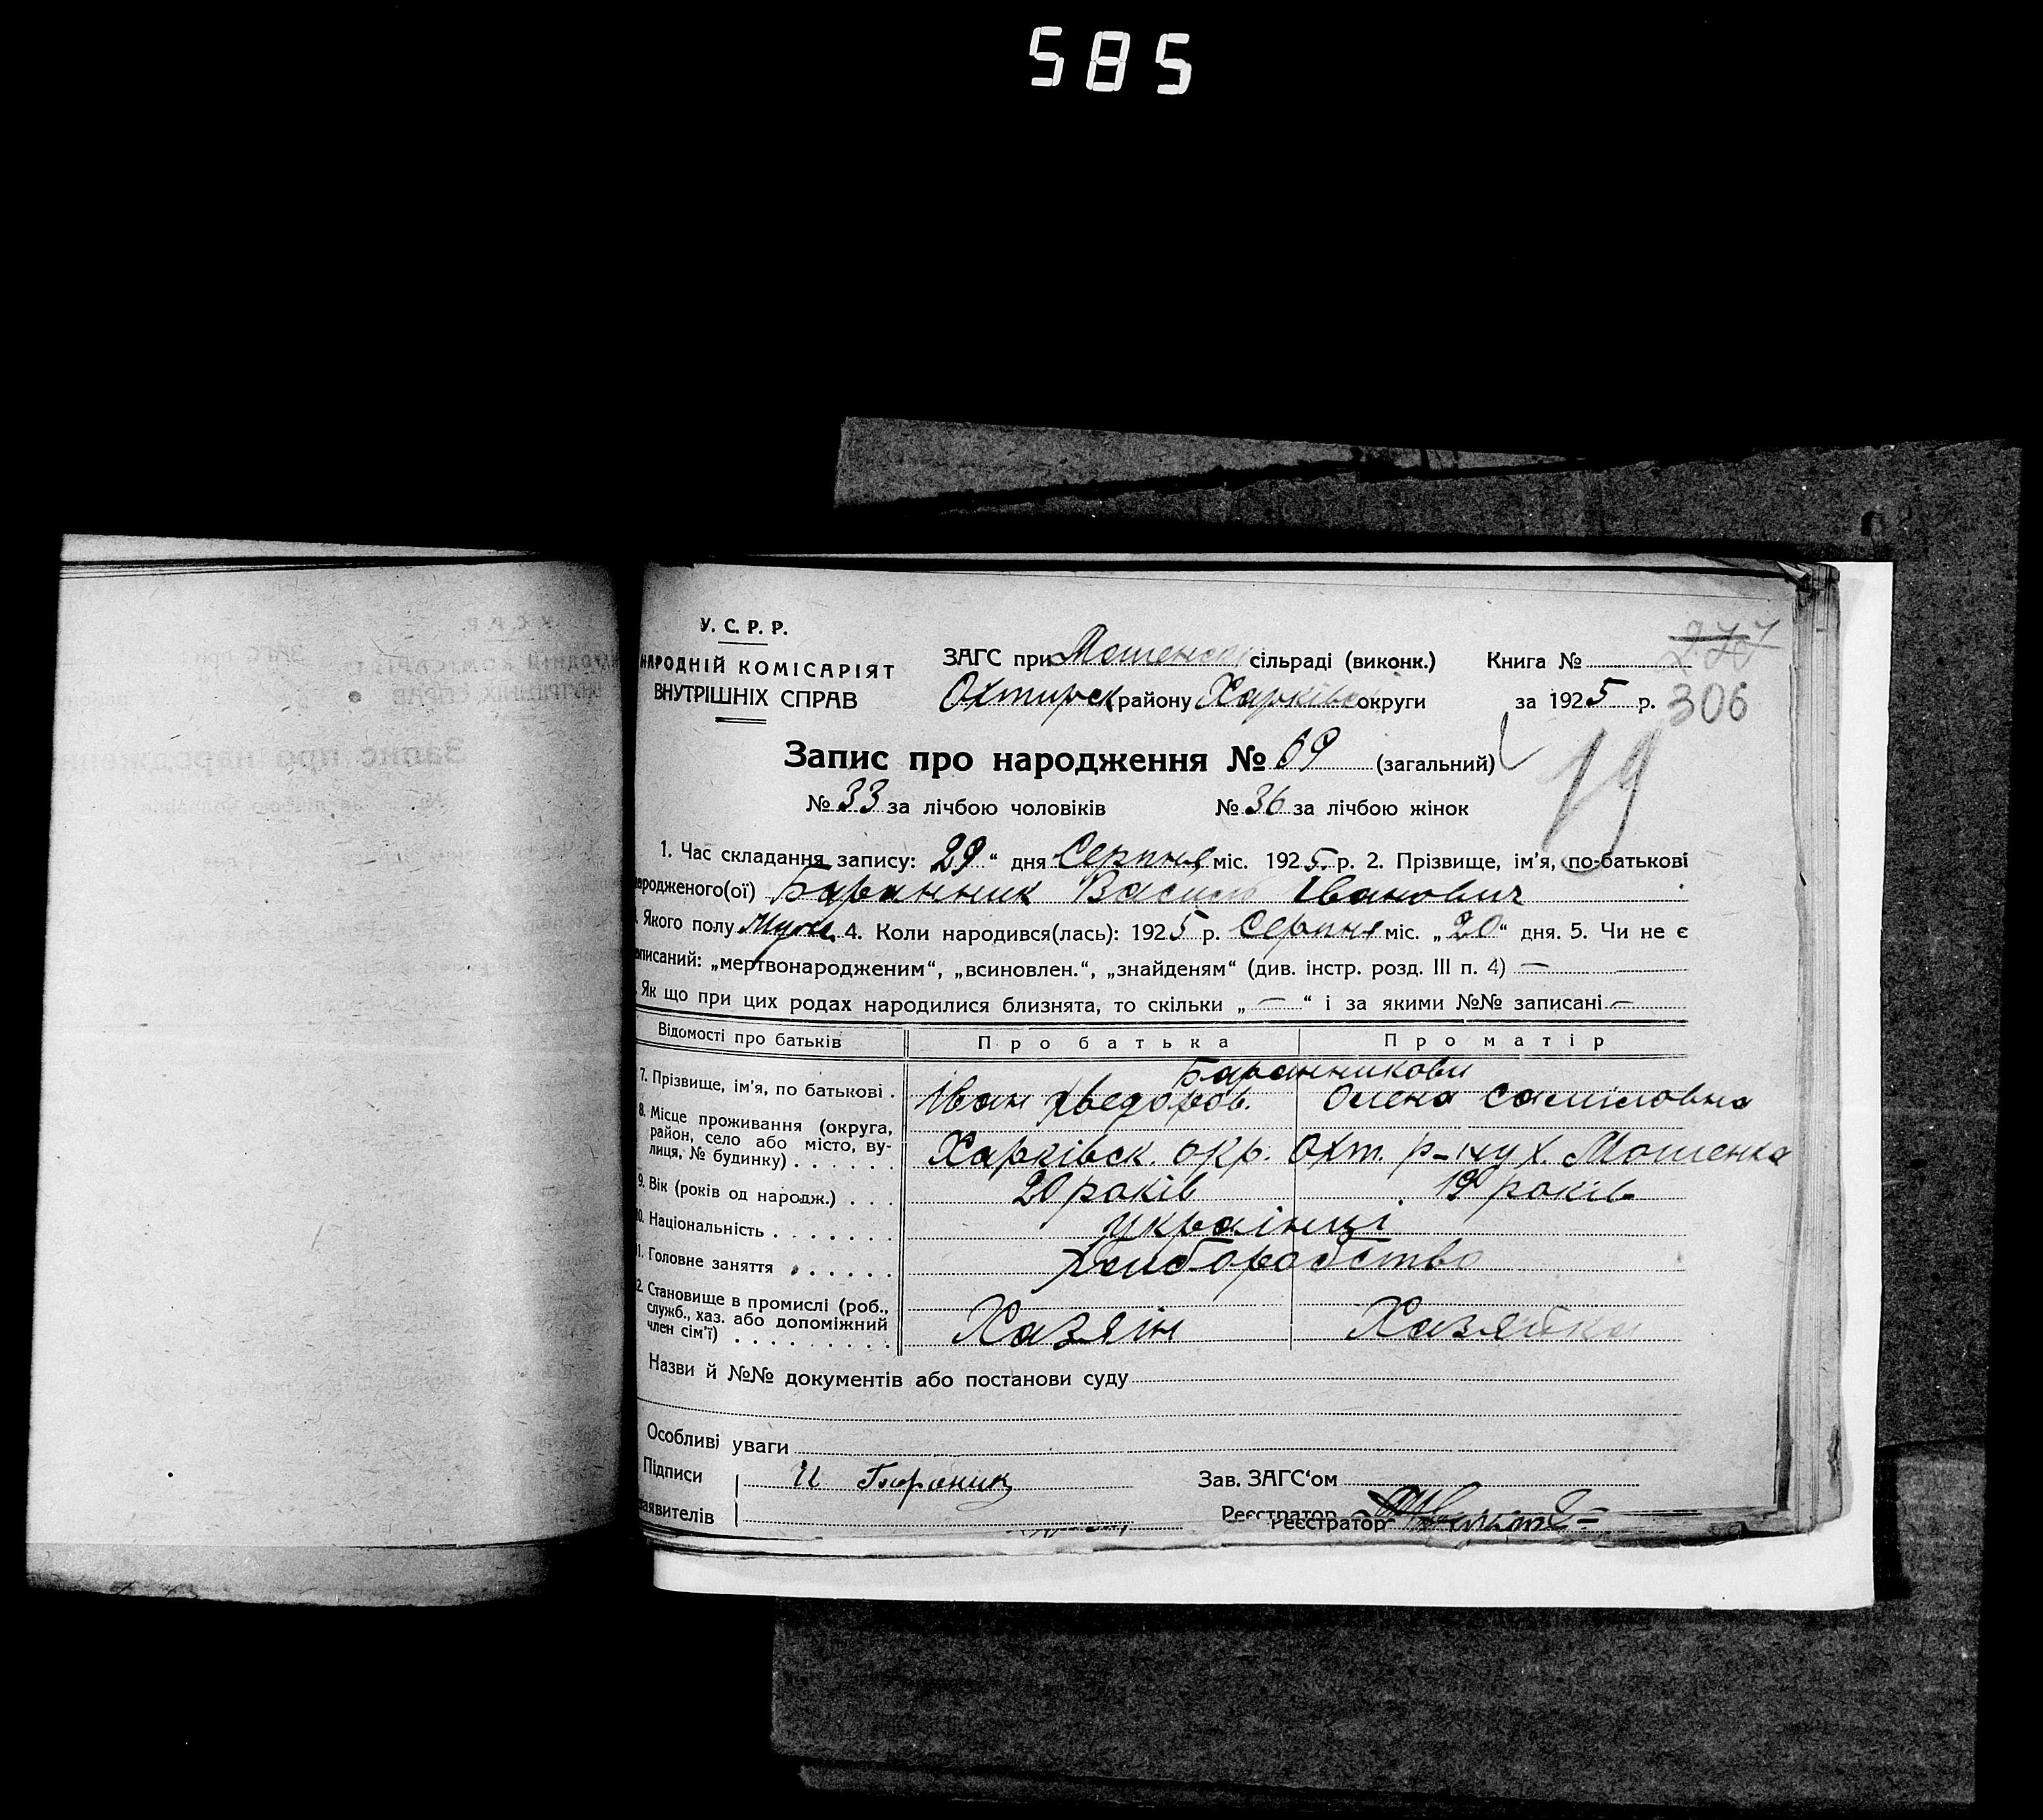 585
У. С. Р. Р.
НАРОДНІЙ КОМІСАРІЯТ
ВНУТРІШНІХ СПРАВ
ЗАГС при Мошенск сільраді (виконк.)
Охтирск району Харківс округи
Книга №
за 1925 р.
277
306
19
Запис про народження № 69 (загальний)
№ 33 за лічбою чоловіків № 36 за лічбою жінок
1. Час складання запису: 29 “ дня Серпня міс. 1925 р. 2. Прізвище, ім’я, по-батькові
народженого(ої) Баранник Василь Іванович
Якого полу Муж. 4. Коли народився(лась): 1925 р. Серпня міс. „20“ дня. 5. Чи не є
записаний: „мертвонародженим“, „всиновлен.“, „знайденям“ (див. інстр. розд. III п. 4) —
Як що при цих родах народилися близнята, то скільки „—“ і за якими №№ записані —
Відомості про батьків Про батька Про матір
Баранникови
7. Прізвище, ім’я, по батькові . Іван Хведоров. Олена Самійловна
8. Місце проживання (округа,
район, село або місто, ву-
лиця, № будинку) . . . . . . Харківск. окр. Охт. р-ну х. Мошенка
9. Вік (років од народж.) . . . 20 років 19 років
10. Національність . . . . . . . українці
11. Головне заняття . . . . . . Хлиборобство
2. Становище в промислі (роб.,
служб., хаз. або допоміжний
член сім’ї) . . . . . . . . . Хазяїн Хазяйка
Назви й №№ документів або постанови суду
Особливі уваги
Підписи И Бараник
заявителів
Зав. ЗАГС‘ом
Реєстратор
Реєстратор